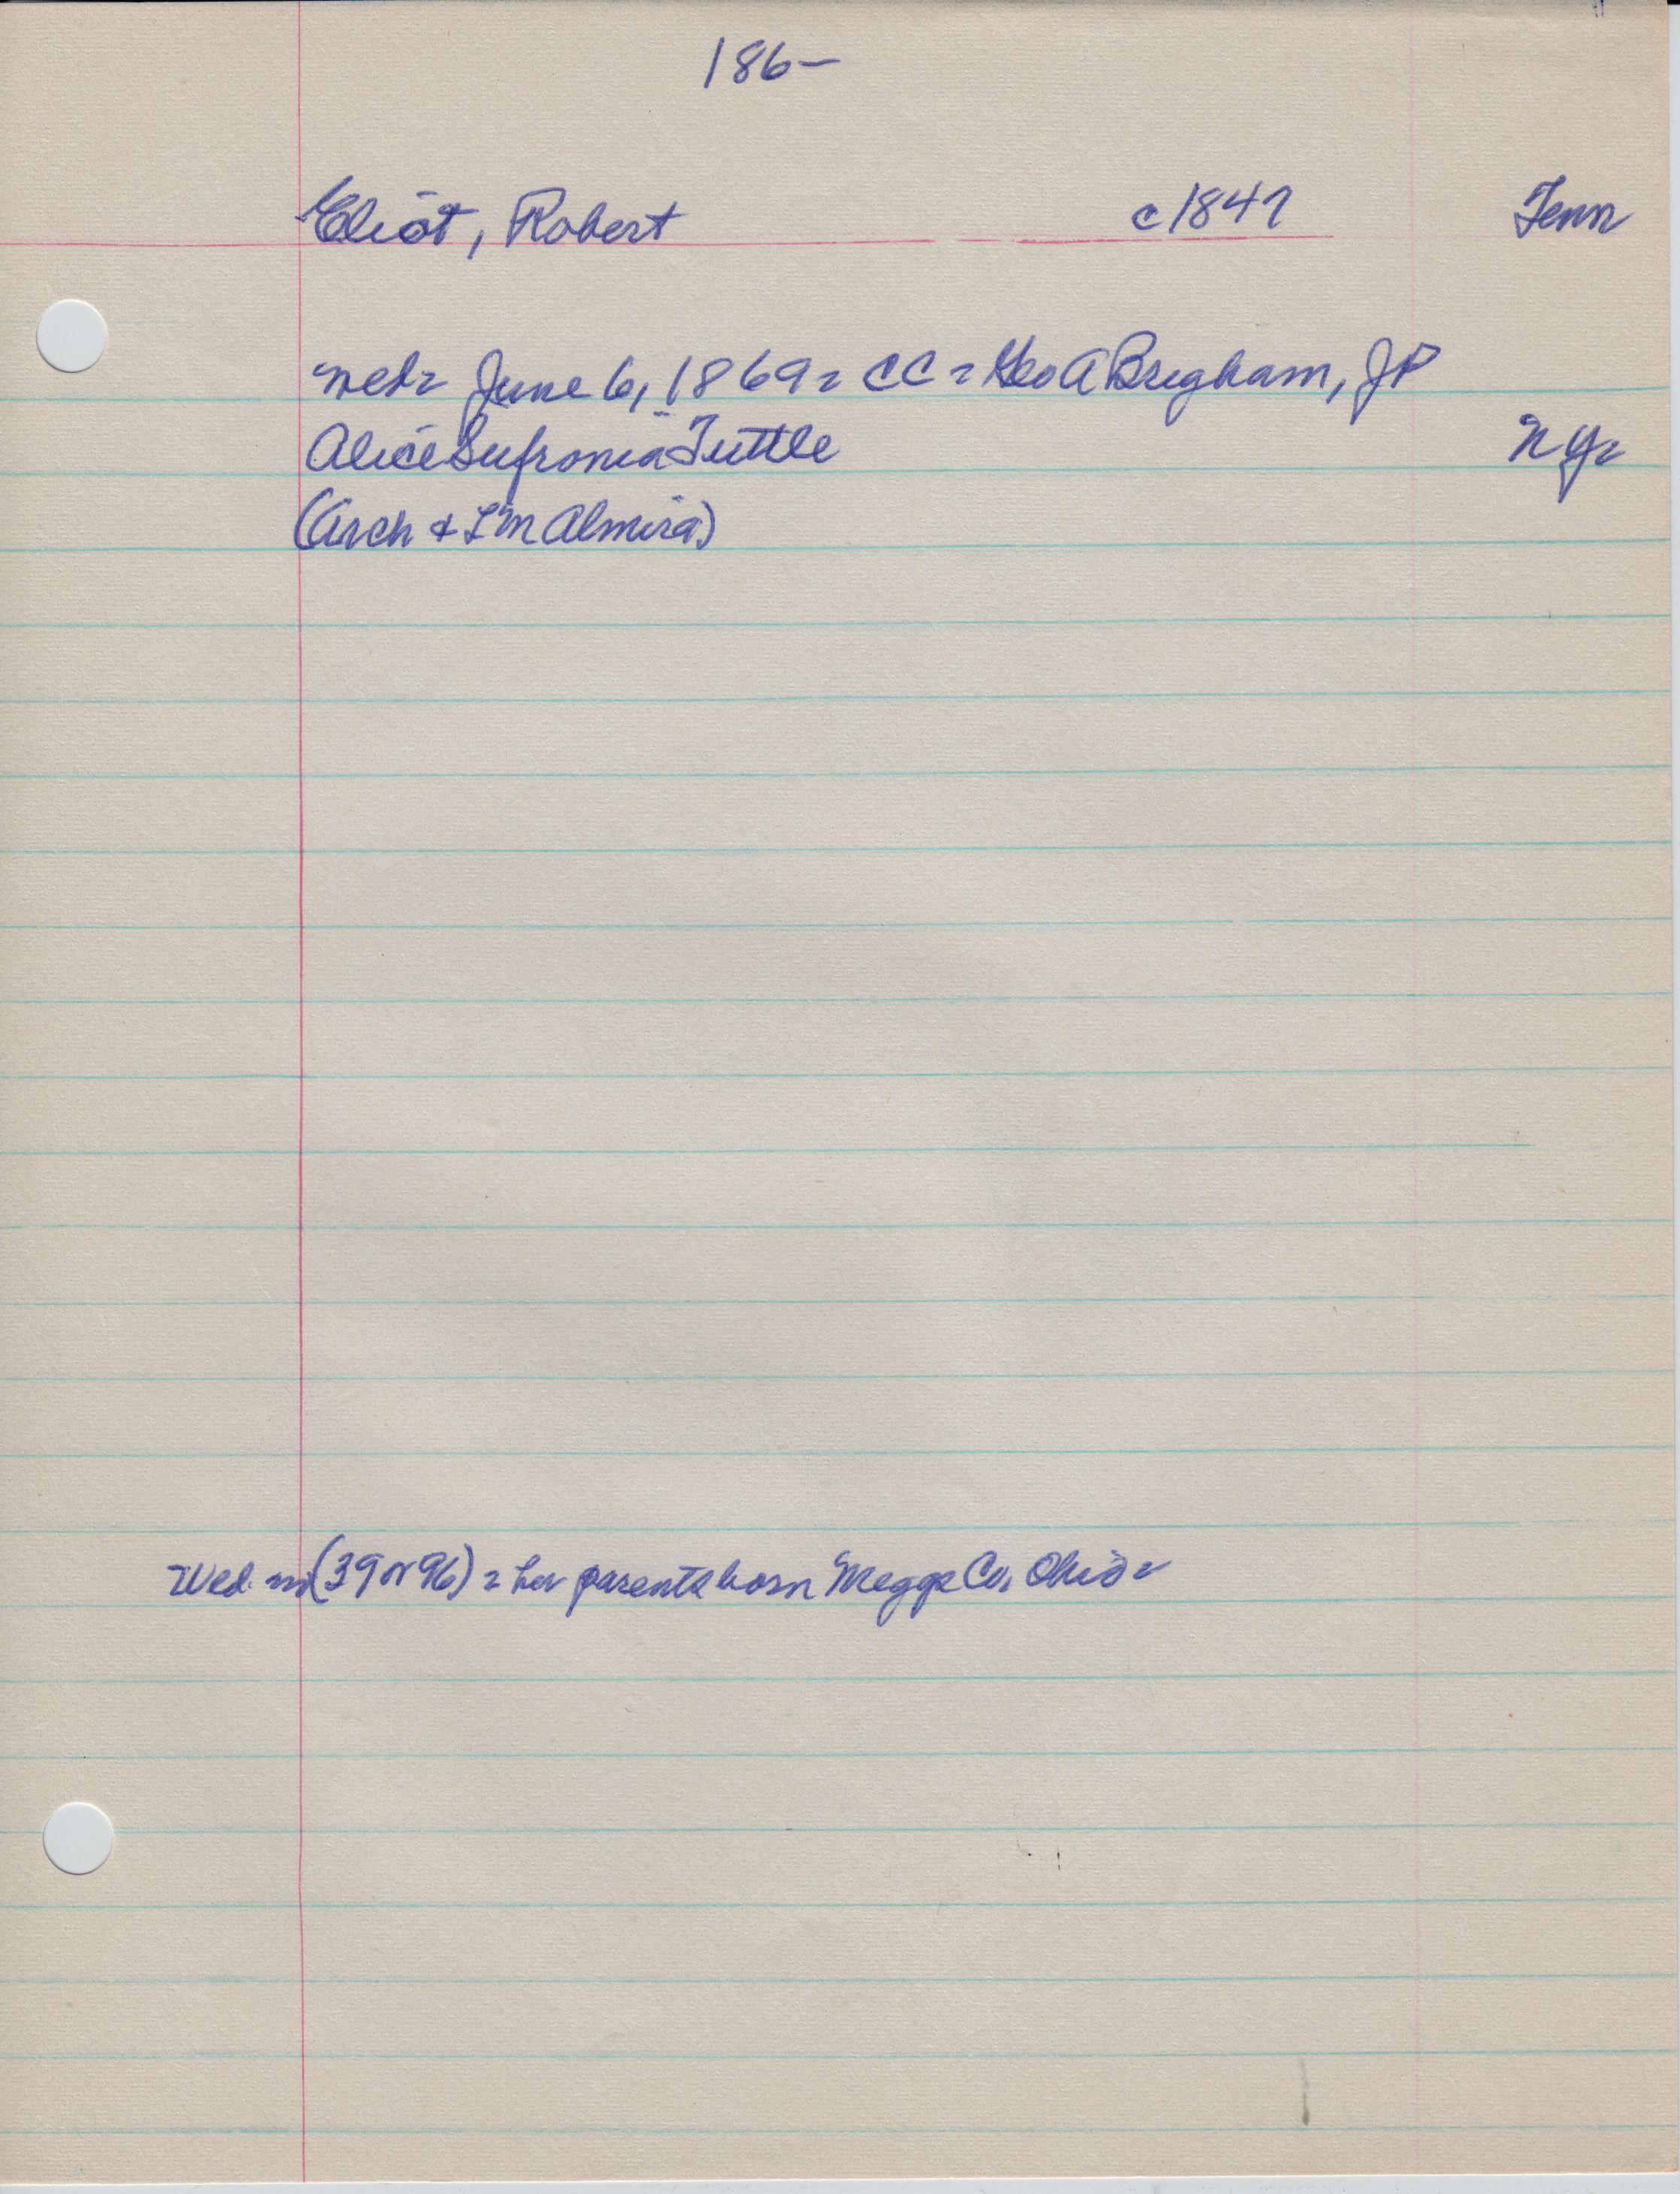 186-
Eliot, Robert c1847 Tenn
wed- June 6, 1869- CC- Geo A Brigham, JP
Alice Sufronia Tuttle NY-
(Arch & L M Almira)
Wed. (39 or 96)- her parents born Meggs Co, Ohio-